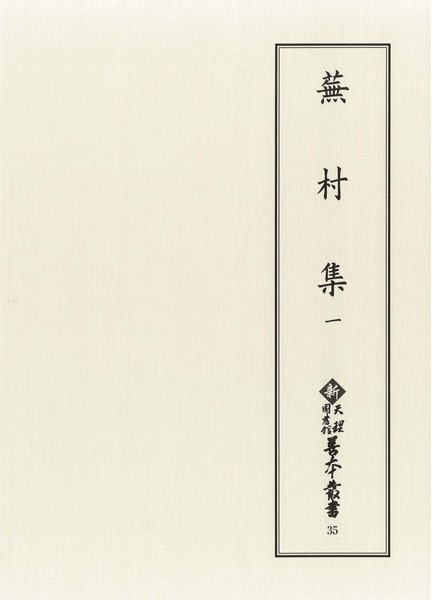 蕪村集 一
新 天理図書館 善本叢書 35